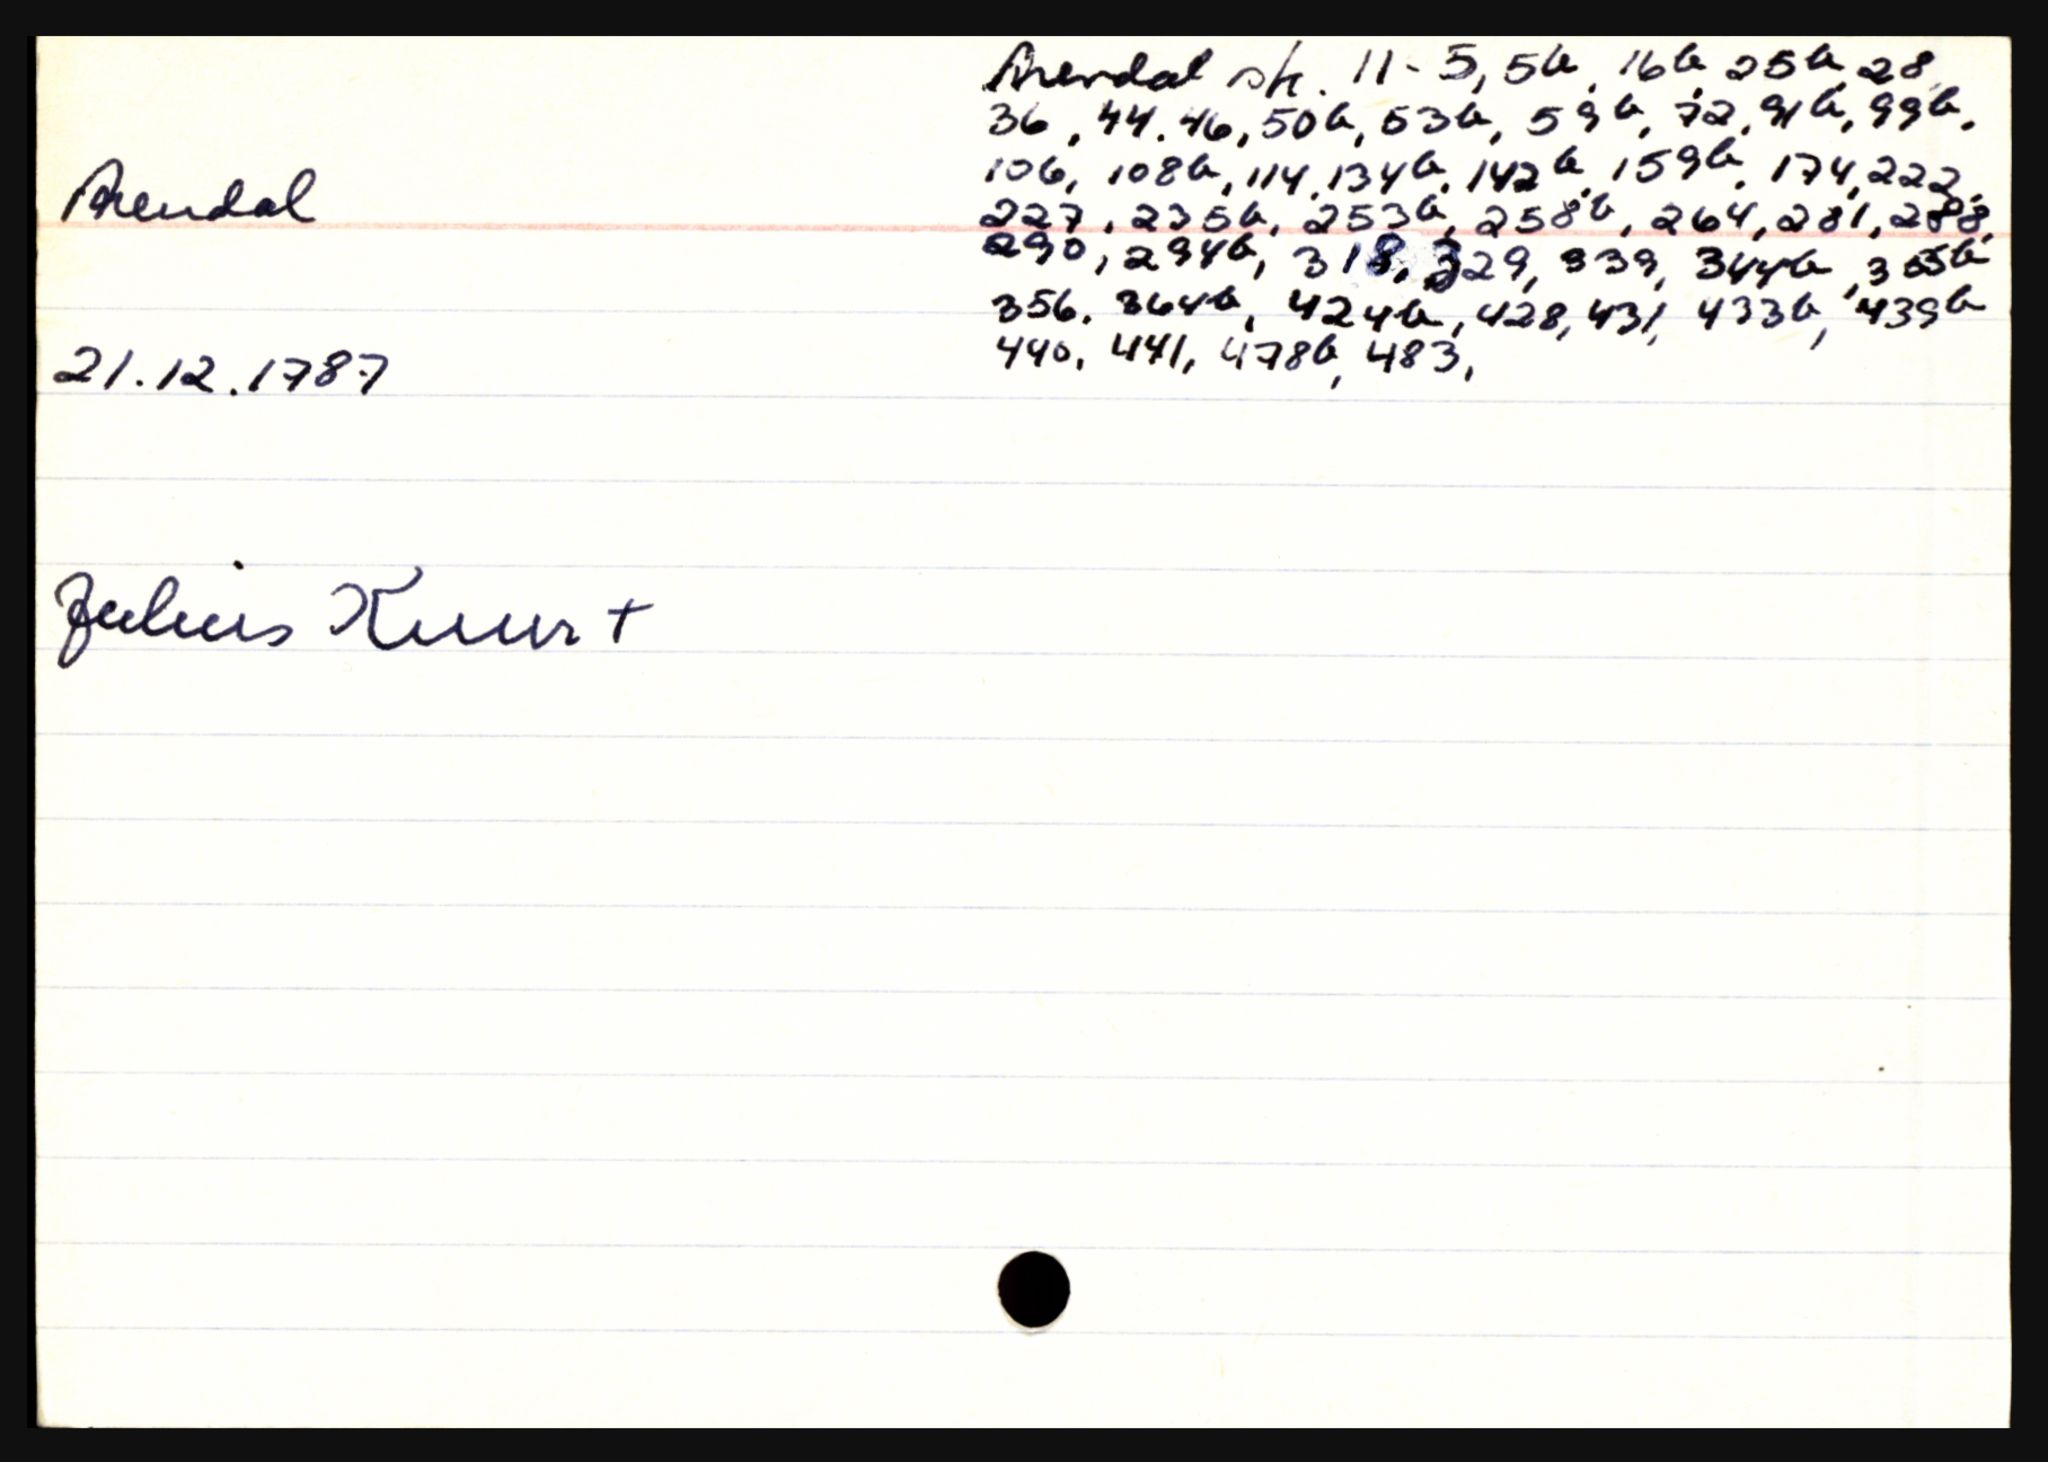 Arendal sk. 11-5, 5b, 16b, 25b, 28,
36, 44. 46, 50b, 53b, 59b, 72, 91b, 99b.
106, 108b, 114, 134b, 142b, 159b, 174, 222,
227, 235b, 253b, 258b, 264, 281, 288,
290, 294b, 318, 329, 339, 344b, 355b
356. 364b, 424b, 428, 431, 433b, 439b
440, 441, 478b, 483,
Arendal
21.12.1787
Julius